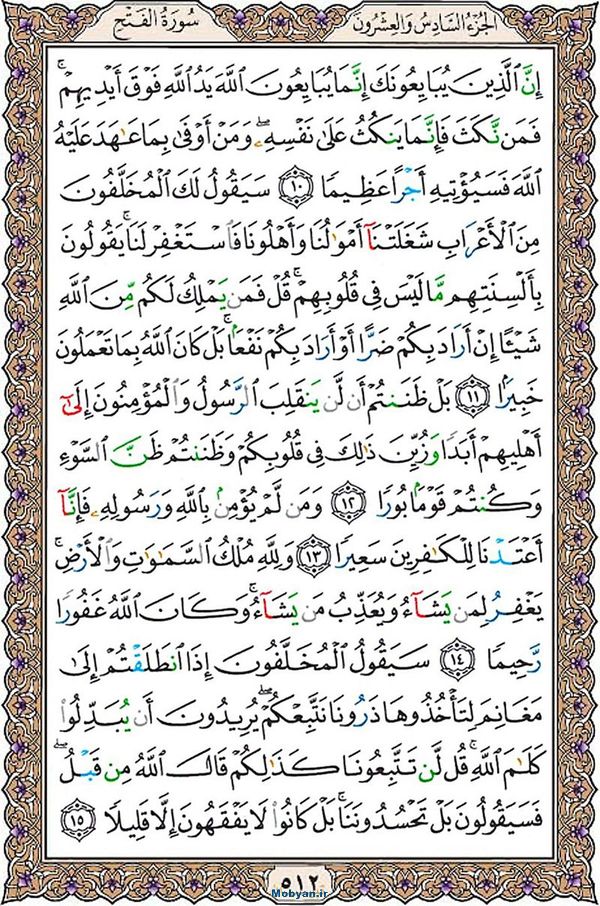 الجُزءُ السَّادِسُ وَالعِشرُونَ
سُورَةُ الفَتۡحِ
إِنَّ ٱلَّذِينَ يُبَايِعُونَكَ إِنَّمَا يُبَايِعُونَ ٱللَّهَ يَدُ ٱللَّهِ فَوۡقَ أَيۡدِيهِمۡۚ
فَمَن نَّكَثَ فَإِنَّمَا يَنكُثُ عَلَىٰ نَفۡسِهِۦۖ وَمَنۡ أَوۡفَىٰ بِمَا عَٰهَدَ عَلَيۡهُ
ٱللَّهَ فَسَيُؤۡتِيهِ أَجۡرًا عَظِيمٗا ١٠ سَيَقُولُ لَكَ ٱلۡمُخَلَّفُونَ
مِنَ ٱلۡأَعۡرَابِ شَغَلَتۡنَآ أَمۡوَٰلُنَا وَأَهۡلُونَا فَٱسۡتَغۡفِرۡ لَنَاۚ يَقُولُونَ
بِأَلۡسِنَتِهِم مَّا لَيۡسَ فِي قُلُوبِهِمۡۚ قُلۡ فَمَن يَمۡلِكُ لَكُم مِّنَ ٱللَّهِ
شَيۡـًٔا إِنۡ أَرَادَ بِكُمۡ ضَرًّا أَوۡ أَرَادَ بِكُمۡ نَفۡعَۢاۚ بَلۡ كَانَ ٱللَّهُ بِمَا تَعۡمَلُونَ
خَبِيرَۢا ١١ بَلۡ ظَنَنتُمۡ أَن لَّن يَنقَلِبَ ٱلرَّسُولُ وَٱلۡمُؤۡمِنُونَ إِلَىٰٓ
أَهۡلِيهِمۡ أَبَدٗا وَزُيِّنَ ذَٰلِكَ فِي قُلُوبِكُمۡ وَظَنَنتُمۡ ظَنَّ ٱلسَّوۡءِ
وَكُنتُمۡ قَوۡمَۢا بُورٗا ١٢ وَمَن لَّمۡ يُؤۡمِنۢ بِٱللَّهِ وَرَسُولِهِۦ فَإِنَّآ
أَعۡتَدۡنَا لِلۡكَٰفِرِينَ سَعِيرٗا ١٣ وَلِلَّهِ مُلۡكُ ٱلسَّمَٰوَٰتِ وَٱلۡأَرۡضِۚ
يَغۡفِرُ لِمَن يَشَآءُ وَيُعَذِّبُ مَن يَشَآءُۚ وَكَانَ ٱللَّهُ غَفُورٗا
رَّحِيمٗا ١٤ سَيَقُولُ ٱلۡمُخَلَّفُونَ إِذَا ٱنطَلَقۡتُمۡ إِلَىٰ
مَغَانِمَ لِتَأۡخُذُوهَا ذَرُونَا نَتَّبِعۡكُمۡۖ يُرِيدُونَ أَن يُبَدِّلُواْ
كَلَٰمَ ٱللَّهِۚ قُل لَّن تَتَّبِعُونَا كَذَٰلِكُمۡ قَالَ ٱللَّهُ مِن قَبۡلُۖ
فَسَيَقُولُونَ بَلۡ تَحۡسُدُونَنَاۚ بَلۡ كَانُواْ لَا يَفۡقَهُونَ إِلَّا قَلِيلٗا ١٥
٥١٢
Mobyan.ir